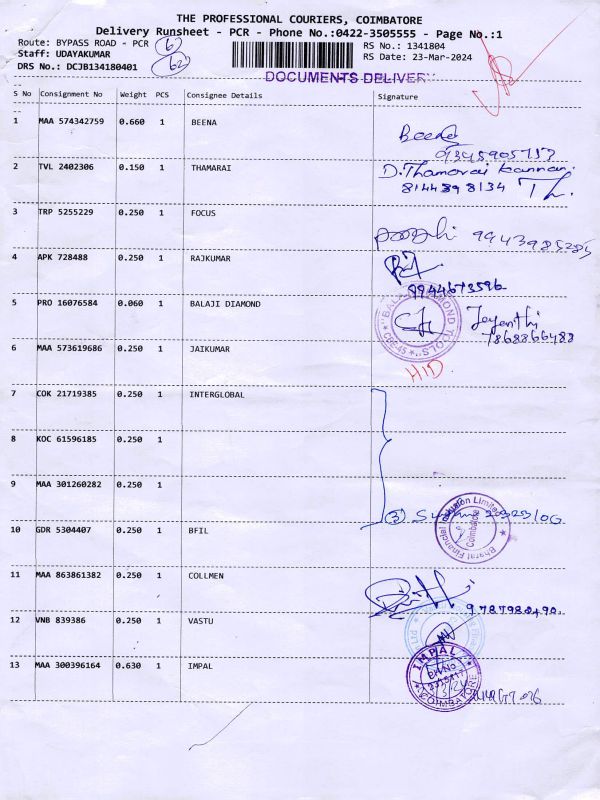 THE PROFESSIONAL COURIERS, COIMBATORE
Delivery Runsheet - PCR - Phone No.:0422-3505555 - Page No.:1
Route: BYPASS ROAD - PCR
RS No.: 1341804
Staff: UDAYAKUMAR
RS Date: 23-Mar-2024
DRS No.: DCJB134180401
DOCUMENTS DELIVER
S No Consignment No Weight PCS Consignee Details Signature
1 MAA 574342759 0.660 1 BEENA
Beena
2 TVL 2402306 0.150 1 THAMARAI D.Thamarai Kannan.
8144898134
3 TRP 5255229 0.250 1 FOCUS
9943985285
4 APK 728488 0.250 1 RAJKUMAR
9944673596
5 PRO 16076584 0.060 1 BALAJI DIAMOND Jayanthi
BALAJI DIAMOND TOOLS
CBE-45
7868866488
6 MAA 573619686 0.250 1 JAIKUMAR
HID
7 COK 21719385 0.250 1 INTERGLOBAL
8 KOC 61596185 0.250 1
9 MAA 301260282 0.250 1
3
10 GDR 5304407 0.250 1 BFIL
Bharat Financial Inclusion Limited
Coimbatore
11 MAA 863861382 0.250 1 COLLMEN
12 VNB 839386 0.250 1 VASTU
13 MAA 300396164 0.630 1 IMPAL
IMPAL
COIMBATORE